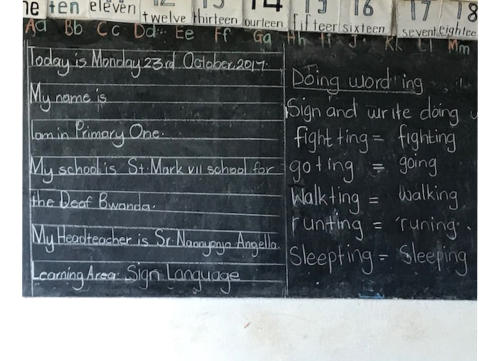 ne ten eleven twelve thirteen ourteen fifteen sixteen seventeen eightee
15 16 17 18
Aa Bb Cc Dd Ee Ff Gg Hh Ii J Kk Ll Mm
Today is Monday 23rd October, 2017.
My name is
I am in Primary One.
My school is St. Mark VII school for
the Deaf Bwanda.
My Headteacher is Sr. Nannyonjo Angella.
Learning Area: Sign Language
Doing word "ing
Sign and write doing w
fight ting = fighting
go ting = going
Walkting = walking
runting = runing.
Sleepting = Sleeping